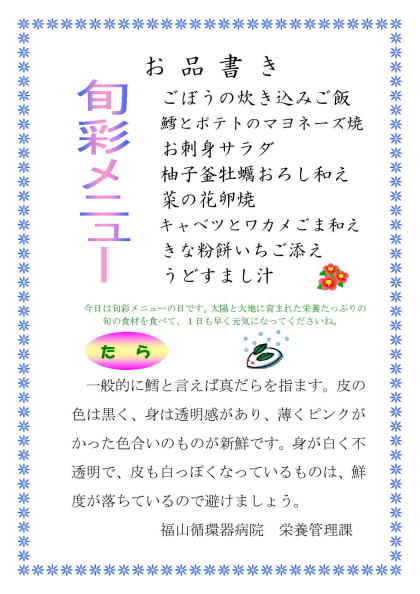 お品書き
旬彩メニュー
ごぼうの炊き込みご飯
鱈とポテトのマヨネーズ焼
お刺身サラダ
柚子釜牡蠣おろし和え
菜の花卵焼
キャベツとワカメごま和え
きな粉餅いちご添え
うどすまし汁
今日は旬彩メニューの日です。太陽と大地に育まれた栄養たっぷりの
旬の食材を食べて、1日も早く元気になってくださいね。
たら
一般的に鱈と言えば真だらを指ます。皮の
色は黒く、身は透明感があり、薄くピンクが
かった色合いのものが新鮮です。身が白く不
透明で、皮も白っぽくなっているものは、鮮
度が落ちているので避けましょう。
福山循環器病院 栄養管理課